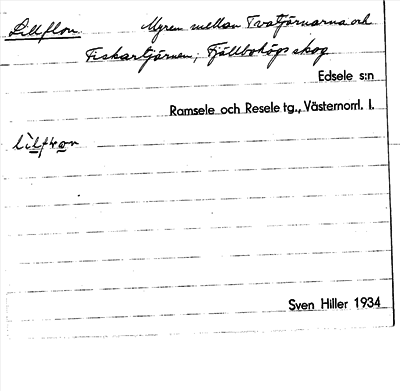 Lillflon. Myren mellan Tvatjärnarna och
Fiskartjärnen; Fjällbohögs skog
Edsele s:n
Ramsele och Resele tg., Västernorrl. l.
Sven Hiller 1934